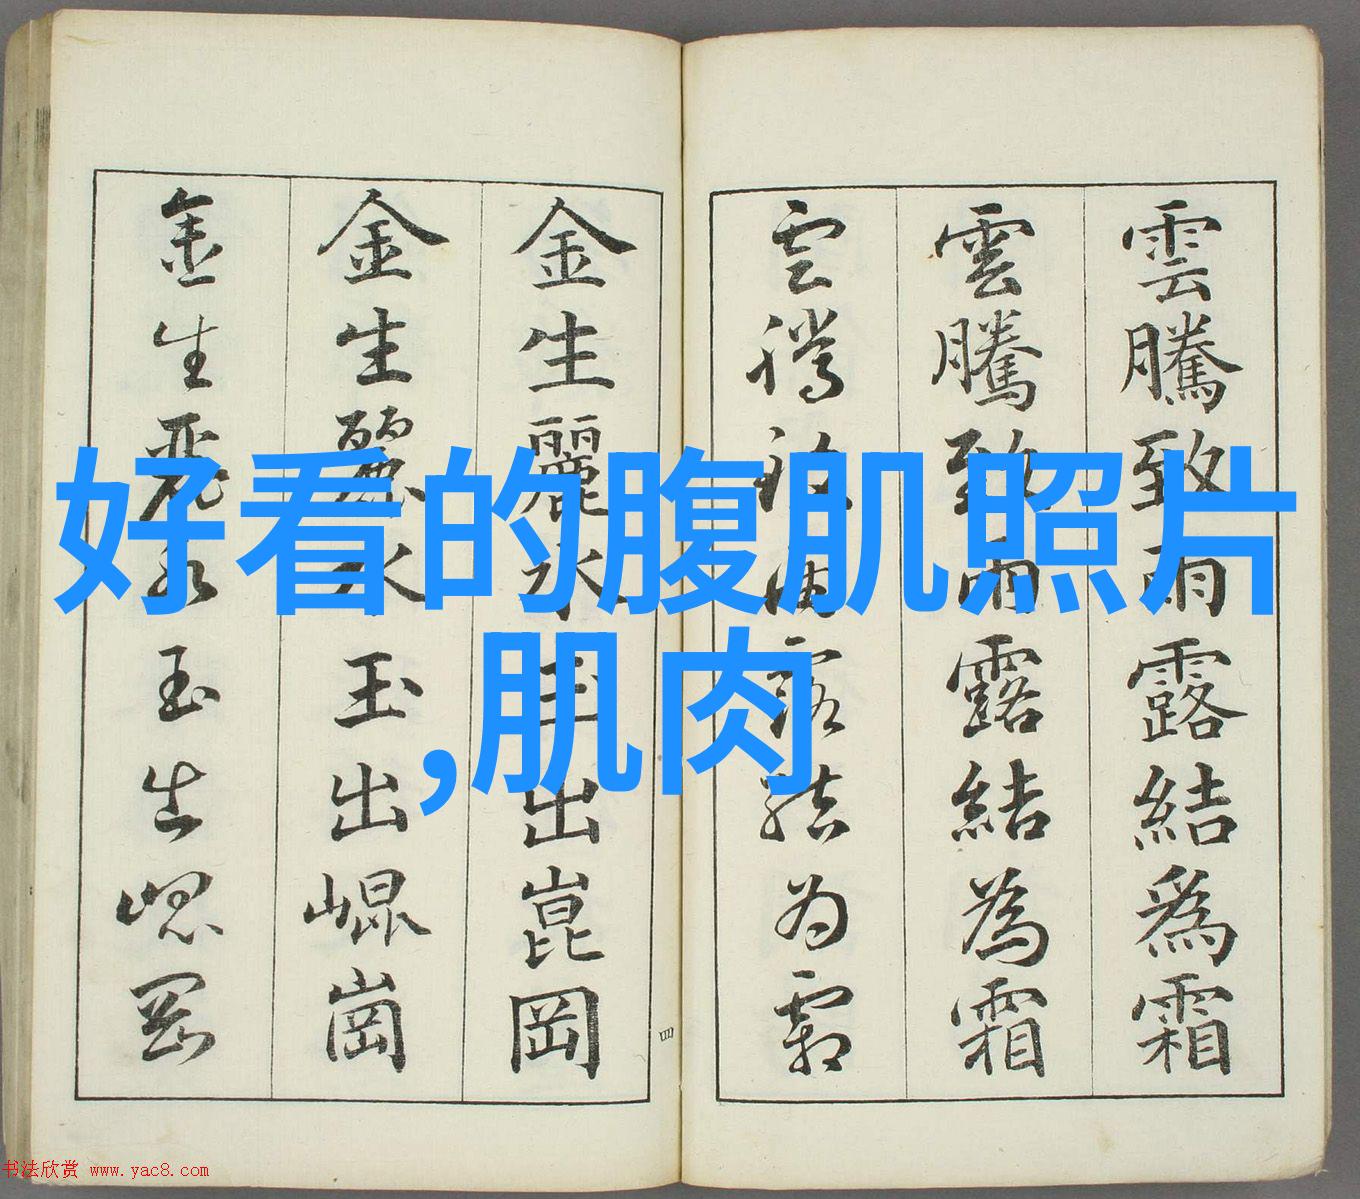 雲騰致雨露結爲霜
雲騰致雨露結為霜
雲騰致雨露結为霜
金生麗水玉出崑岡
金生麗水玉出崐崗
金生麗水玉出崐岡
四
好看的腹肌照片
,肌肉
书法欣赏 www.yac8.com